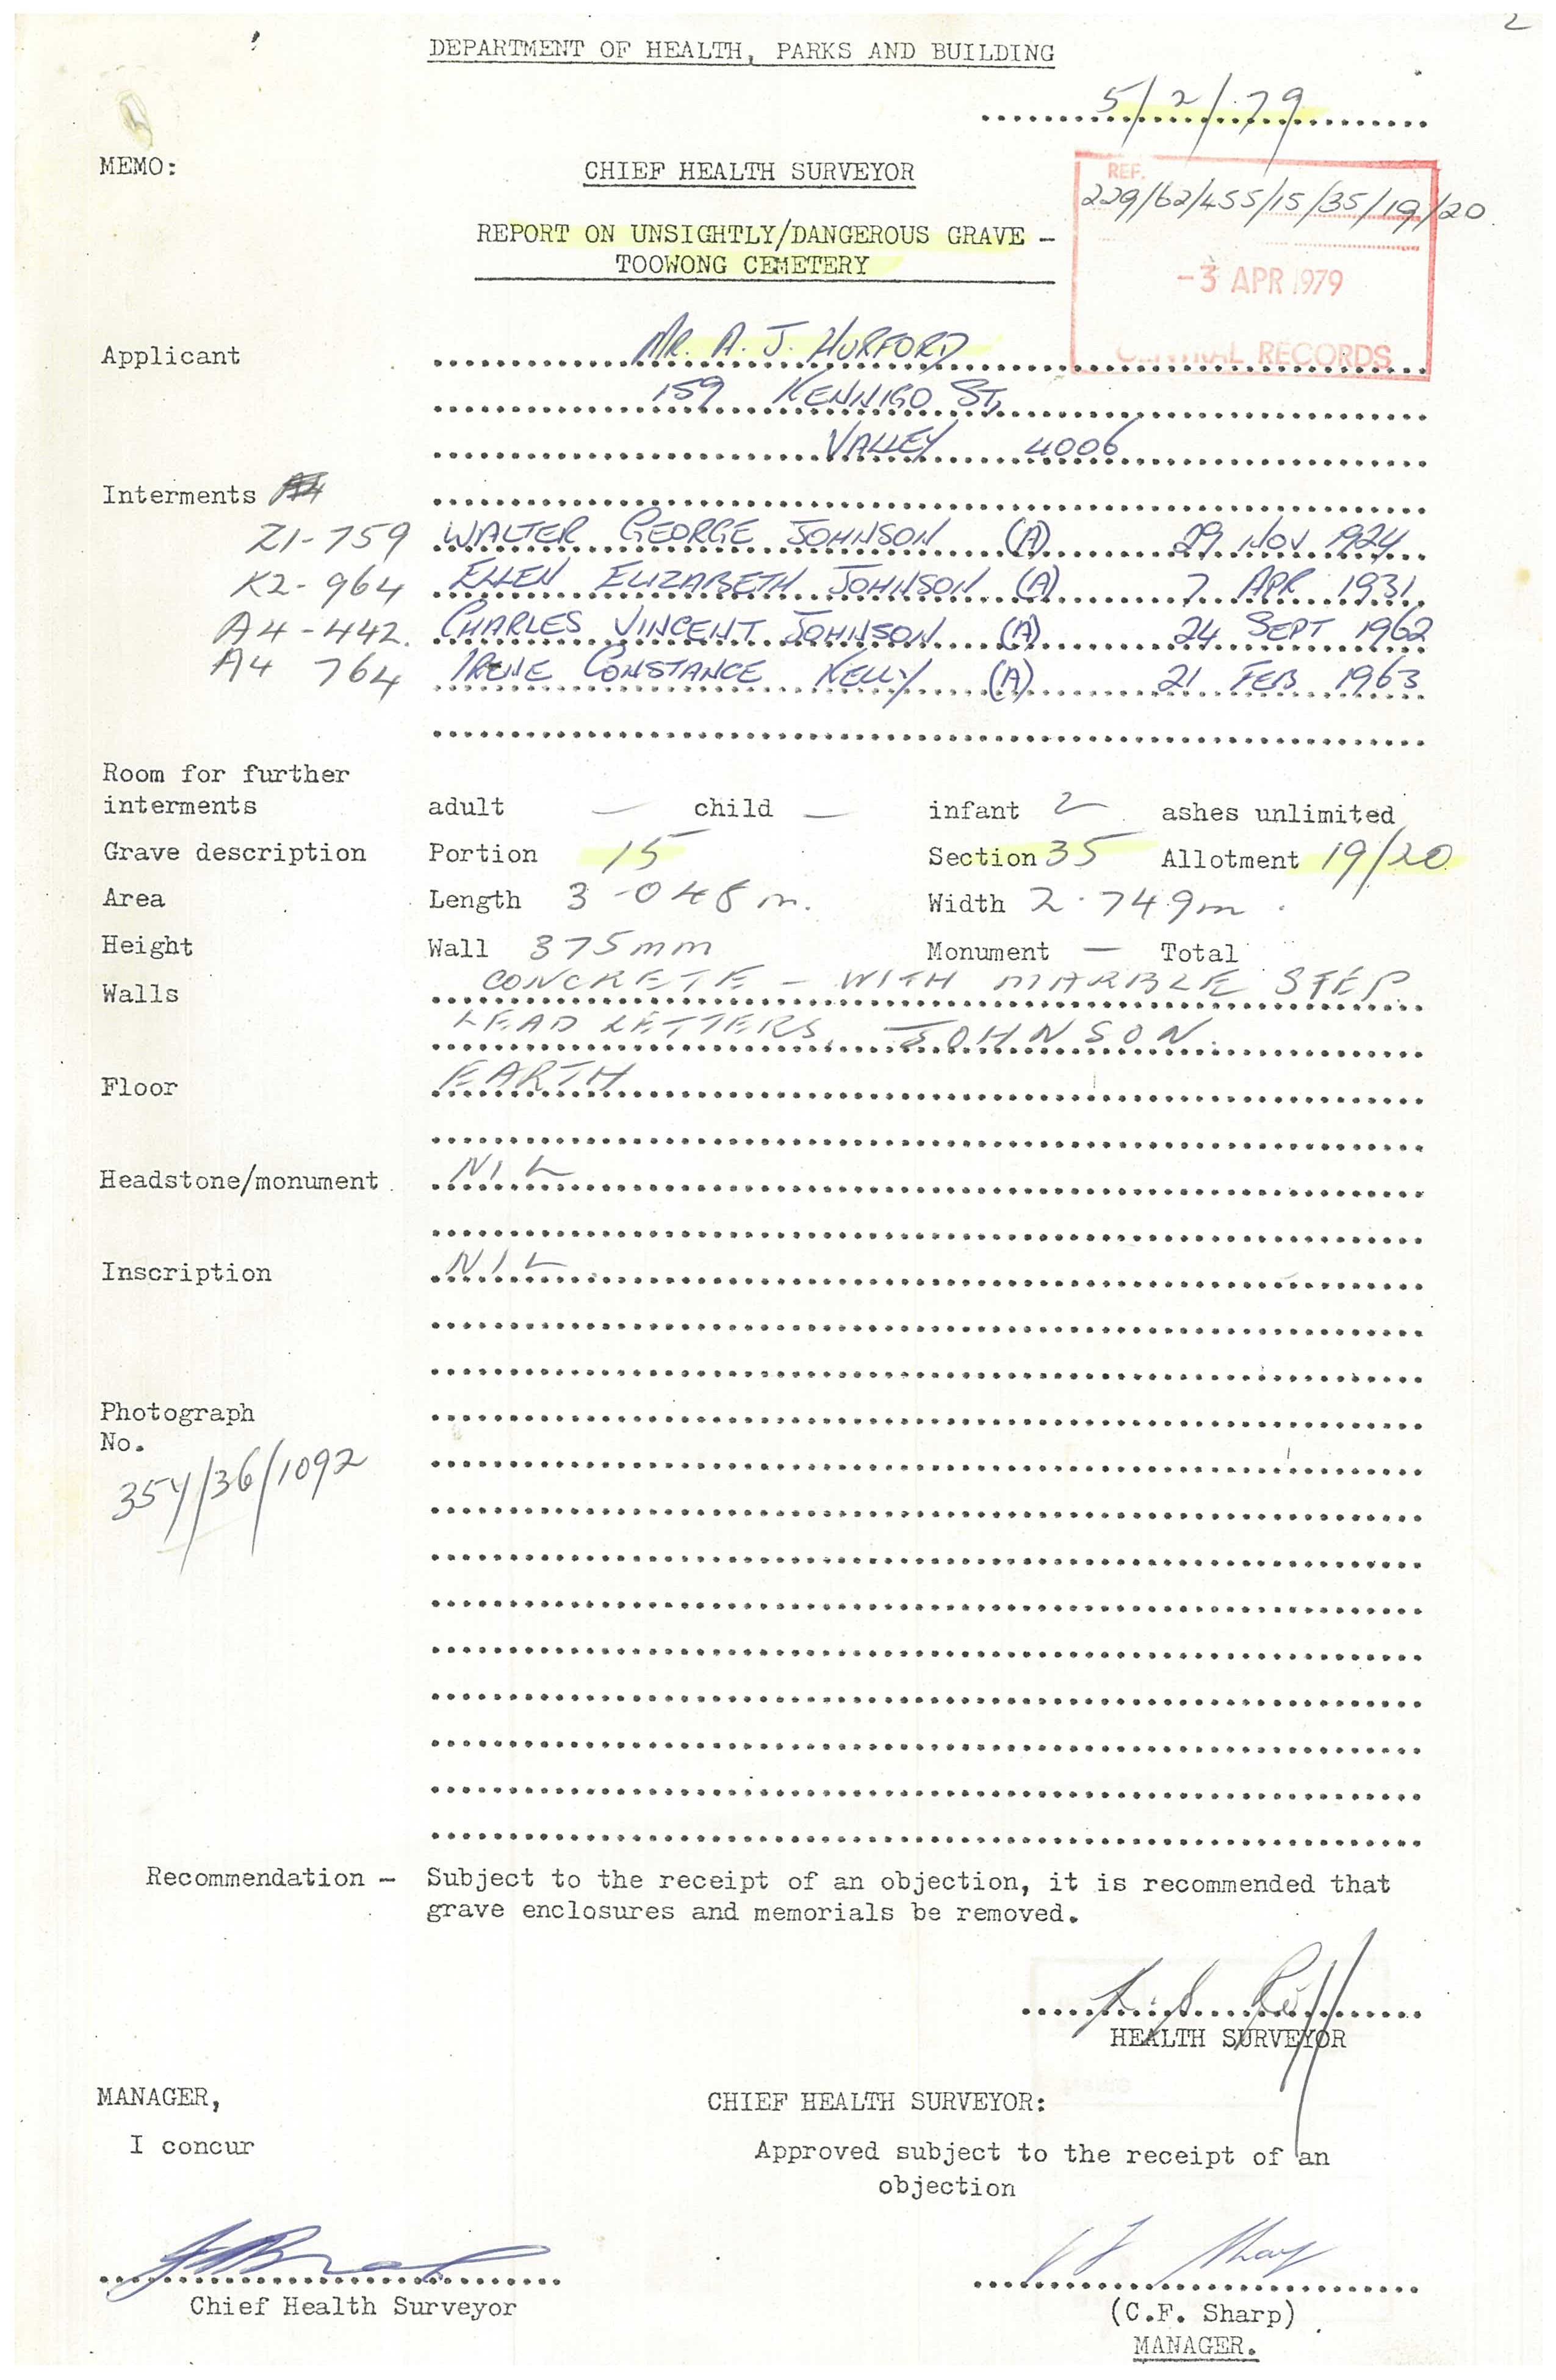 2
DEPARTMENT OF HEALTH, PARKS AND BUILDING
5/2/79
MEMO:
CHIEF HEALTH SURVEYOR
REF.
229/62/455/15/35/19/20
REPORT ON UNSIGHTLY/DANGEROUS GRAVE -
TOOWONG CEMETERY
-3 APR 1979
CENTRAL RECORDS
Applicant MR. A. J. HURFORD
159 KENNIGO ST,
VALLEY 4006
Interments A4
Z1-759 WALTER GEORGE JOHNSON (A) 29 NOV 1924
K2-964 ELLEN ELIZABETH JOHNSON (A) 7 APR 1931
A4-442. CHARLES VINCENT JOHNSON (A) 24 SEPT 1962
A4 764 IRENE CONSTANCE KELLY (A) 21 FEB 1963
Room for further
interments adult — child — infant 2 ashes unlimited
Grave description Portion 15 Section 35 Allotment 19/20
Area Length 3.048m. Width 2.749m.
Height Wall 375mm Monument — Total
Walls CONCRETE - WITH MARBLE STEP
LEAD LETTERS, JOHNSON.
Floor EARTH
Headstone/monument NIL
Inscription NIL
Photograph
No.
354/36/1092
Recommendation - Subject to the receipt of an objection, it is recommended that
grave enclosures and memorials be removed.
HEALTH SURVEYOR
MANAGER, CHIEF HEALTH SURVEYOR:
I concur Approved subject to the receipt of an
objection
Chief Health Surveyor
(C.F. Sharp)
MANAGER.